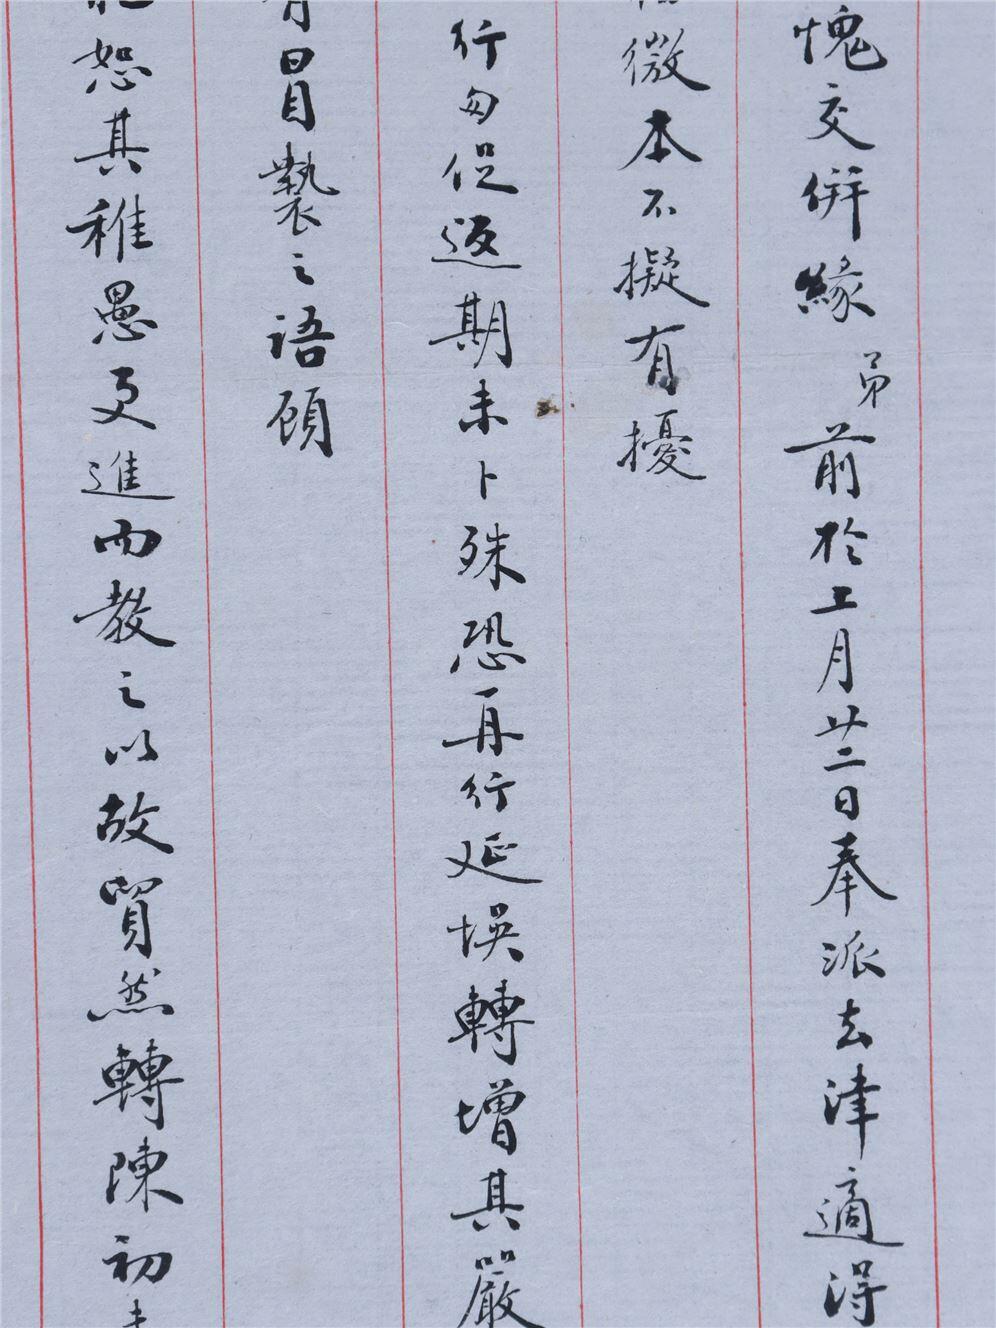 愧交併緣弟前於上月廿二日奉派去津適得
微本不擬有擾
行匆促返期未卜殊恐再行延悞轉增其嚴
冒褻之語顧
恕其稚愚更進而教之以故貿然轉陳初